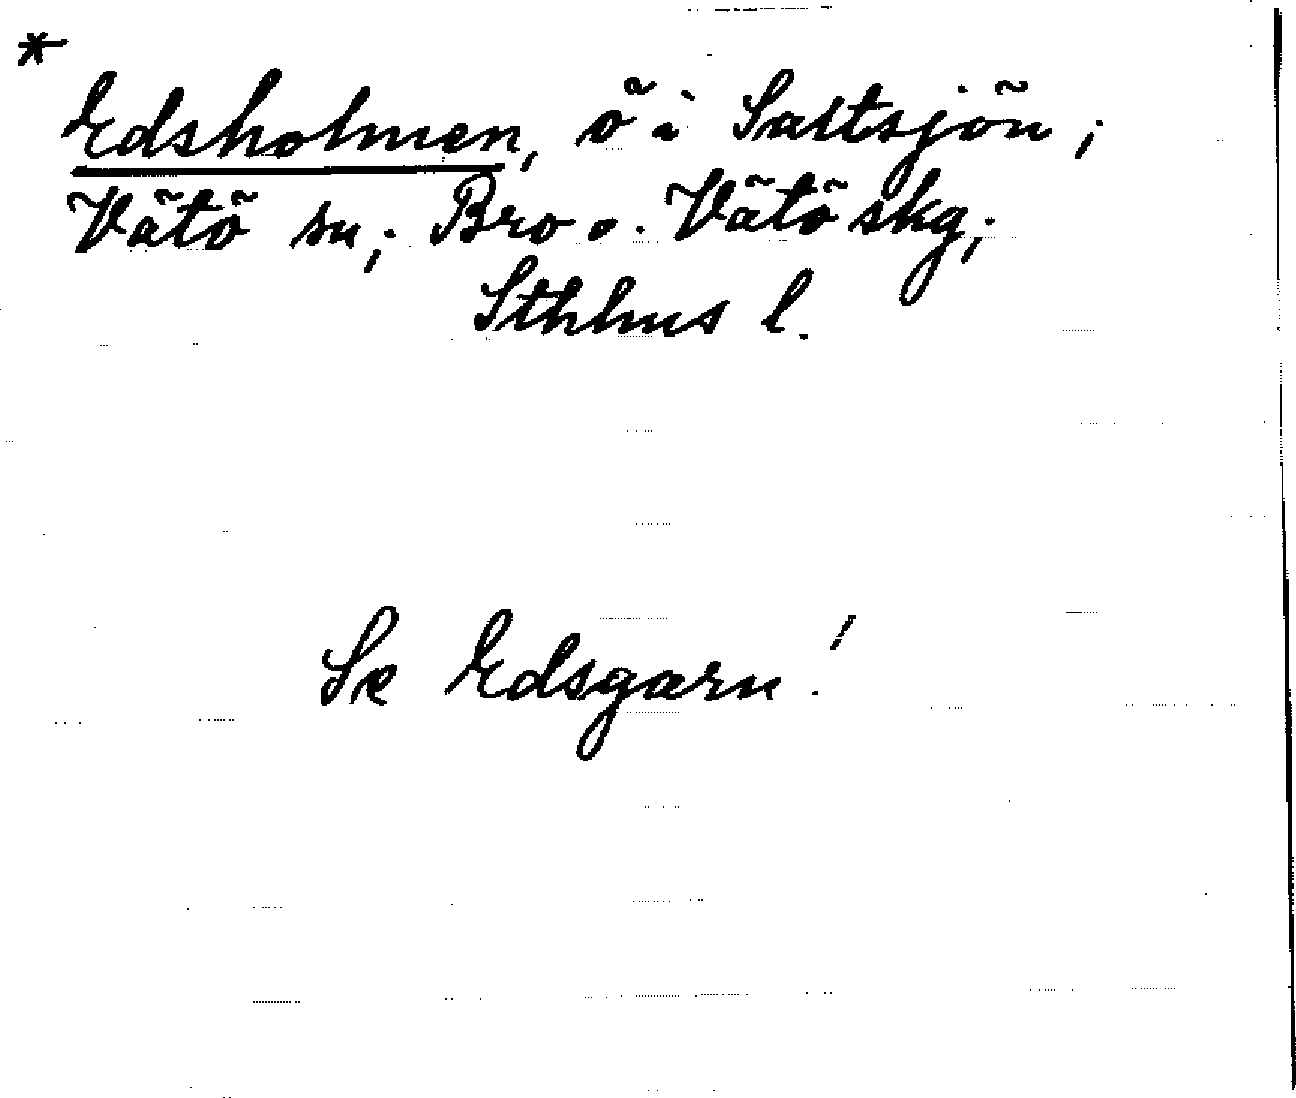 *
Edsholmen, ö i Saltsjön;
Vätö sn; Bro o. Vätö skg;
Sthhus l.
Se Edsgarn!